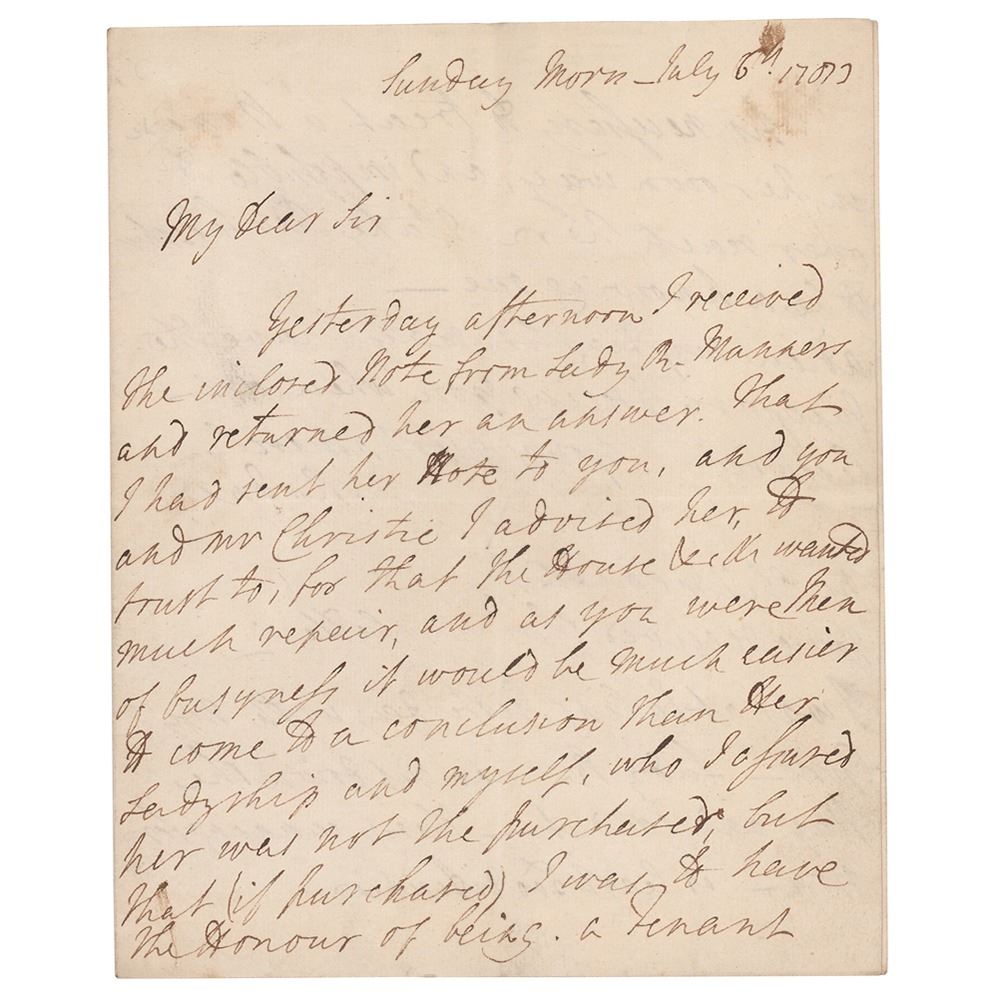 Sunday Morn - July 6th 1783
My Dear Sir
Yesterday afternoon I received
the inclosed Note from Lady R. Manners
and returned her an answer. That
I had sent her Note to you, and you
and Mr Christie I advised her, to
trust to, for that the House &c &c wanted
much repair, and as you were Men
of busyness it would be much easier
to come to a conclusion than Her
Ladyship and myself, who I assured
her was not the purchaser, but
that (if purchased) I was to have
the Honour of being. a Tenant